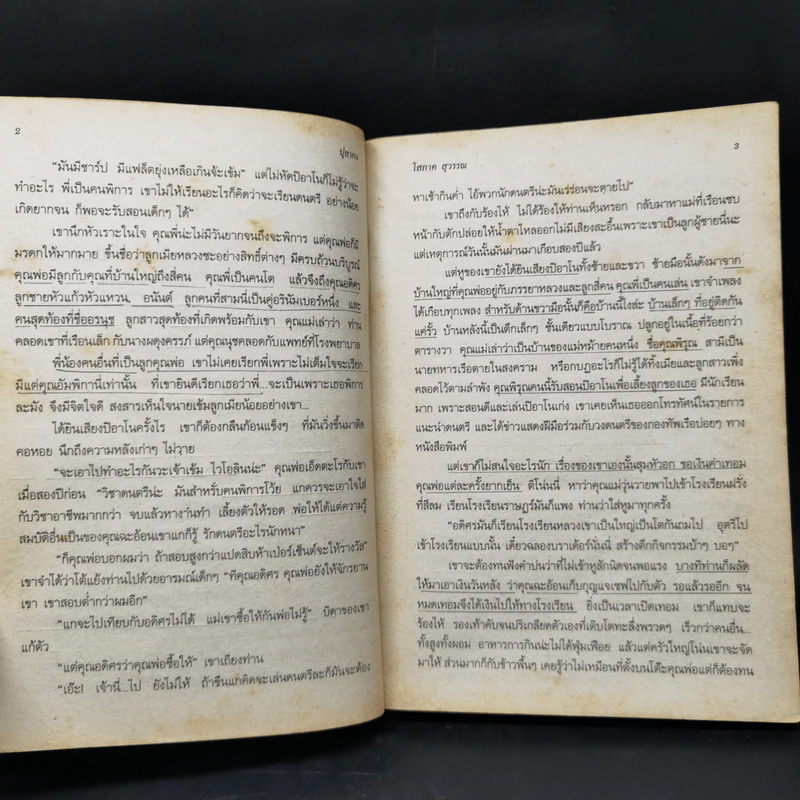 2
ปุลากง
"มันมีชาร์ป มีแฟล็ตยุ่งเหลือเกินจ้ะเข้ม" แต่ไม่หัดปิอาโนก็ไม่รู้ว่าจะ
ทำอะไร พี่เป็นคนพิการ เขาไม่ให้เรียนอะไรก็คิดว่าจะเรียนดนตรี อย่างน้อย
เกิดยากจน ก็พอจะรับสอนเด็กๆ ได้"
เขานึกหัวเราะในใจ คุณพี่น่ะไม่มีวันยากจนถึงจะพิการ แต่คุณพ่อก็มี
มรดกให้มากมาย ขึ้นชื่อว่าลูกเมียหลวงซะอย่างสิทธิ์ต่างๆ มีครบถ้วนบริบูรณ์
คุณพ่อมีลูกกับคุณที่บ้านใหญ่ถึงสี่คน คุณพี่เป็นคนโต แล้วจึงถึงคุณอดิศร
ลูกชายหัวแก้วหัวแหวน อนันต์ ลูกคนที่สามนี่เป็นคู่อรินัมเบอร์หนึ่ง และ
คนสุดท้องที่ชื่ออรนุช ลูกสาวสุดท้องที่เกิดพร้อมกับเขา คุณแม่เล่าว่า ท่าน
คลอดเขาที่เรือนเล็ก กับนางผดุงครรภ์ แต่คุณนุชคลอดกับแพทย์ที่โรงพยาบาล
พี่น้องคนอื่นที่เป็นลูกคุณพ่อ เขาไม่เคยเรียกพี่เพราะไม่เต็มใจจะเรียก
มีแต่คุณอัมพิกานี่เท่านั้น ที่เขายินดีเรียกเธอว่าพี่...จะเป็นเพราะเธอพิการ
ละมัง จึงมีจิตใจดี สงสารเห็นใจนายเข้มลูกเมียน้อยอย่างเขา...
ได้ยินเสียงปิอาโนครั้งไร เขาก็ต้องกลืนก้อนแข็งๆ ที่มันวิ่งขึ้นมาติด
คอหอย นึกถึงความหลังเก่าๆ ไม่วาย
"จะเอาไปทำอะไรกันวะเจ้าเข้ม ไวโอลินน่ะ" คุณพ่อเอ็ดตะโรกับเขา
เมื่อสองปีก่อน "วิชาดนตรีน่ะ มันสำหรับคนพิการโว้ย แกควรจะเอาใจใส่
กับวิชาอาชีพมากกว่า จบแล้วหางานทำ เลี้ยงตัวให้รอด พ่อให้ได้แต่ความรู้
สมบัติอื่นเป็นของคุณฉะอ้อนเขาแกก็รู้ รักดนตรีอะไรนักหนา"
"ก็คุณพ่อบอกผมว่า ถ้าสอบสูงกว่าแปดสิบห้าเปอร์เซ็นต์จะให้รางวัล"
เขาจำได้ว่าได้โต้แย้งท่านไปด้วยอารมณ์เด็กๆ "ทีคุณอดิศร คุณพ่อยังให้จักรยาน
เขา เขาสอบต่ำกว่าผมอีก"
"แกจะไปเทียบกับอดิศรไม่ได้ แม่เขาซื้อให้กันพ่อไม่รู้" บิดาของเขา
แก้ตัว
"แต่คุณอดิศรว่าคุณพ่อซื้อให้" เขาเถียงท่าน
"เอ๊ะ! เจ้านี่...ไป ยังไม่ให้ ถ้าขืนแกคิดจะเล่นดนตรีละก็มันจะต้อง
โสภาค สุวรรณ
3
หาเช้ากินค่ำ ไอ้พวกนักดนตรีน่ะมันเร่ร่อนจะตายไป"
เขาถึงกับร้องไห้ ไม่ได้ร้องให้ท่านเห็นหรอก กลับมาหาแม่ที่เรือนซบ
หน้ากับตักปล่อยให้น้ำตาไหลออกมาไม่มีเสียงสะอื้นเพราะเขาเป็นลูกผู้ชายนี่นะ
แต่เหตุการณ์วันนั้นมันผ่านมาเกือบสองปีแล้ว
แต่หูของเขายังได้ยินเสียงปิอาโนทั้งซ้ายและขวา ซ้ายมือนั้นดังมาจาก
บ้านใหญ่ที่คุณพ่ออยู่กับภรรยาหลวงและลูกสี่คน คุณพี่เป็นคนเล่น เขาจำเพลง
ได้เกือบทุกเพลง สำหรับด้านขวามือนั้นก็คือบ้านนี้ไงล่ะ บ้านเล็กๆ ที่อยู่ติดกัน
แค่รั้ว บ้านหลังนี้เป็นตึกเล็กๆ ชั้นเดียวแบบโบราณ ปลูกอยู่ในเนื้อที่ร้อยกว่า
ตารางวา คุณแม่เล่าว่าเป็นบ้านของแม่หม้ายคนหนึ่ง ชื่อคุณพิรุณ สามีเป็น
นายทหารเรือตายในสงคราม หรือกบฏอะไรก็ไม่รู้ได้ทิ้งเมียและลูกสาวเพิ่ง
คลอดไว้ตามลำพัง คุณพิรุณคนนี้รับสอนปิอาโนเพื่อเลี้ยงลูกของเธอ มีนักเรียน
มาก เพราะสอนดีและเล่นปิอาโนเก่ง เขาเคยเห็นเธอออกโทรทัศน์ในรายการ
แนะนำดนตรี และได้ข่าวแสดงฝีมือร่วมกับวงดนตรีของกองทัพเรือบ่อยๆ ทาง
หนังสือพิมพ์
แต่เขาก็ไม่สนใจอะไรนัก เรื่องของเขาเองนั้นสุมหัวอก ขอเงินค่าเทอม
คุณพ่อแต่ละครั้งยากเย็น ดีโน่นนี่ หาว่าคุณแม่วุ่นวายพาไปเข้าโรงเรียนฝรั่ง
ที่สีลม เรียนโรงเรียนราษฎร์มันก็แพง ท่านว่าใส่หูมาทุกครั้ง
"อดิศรมันก็เรียนโรงเรียนหลวงเขาเป็นใหญ่เป็นโตกันถมไป อุตรีไป
เข้าโรงเรียนแบบนั้น เดี๋ยวฉลองบราเดอร์นั่นนี่ สร้างตึกกิจกรรมบ้าๆ บอๆ"
เขาจะต้องทนฟังคำบ่นว่าที่ไม่เข้าหูสักนิดจนพอแรง บางทีท่านก็ผลัด
ให้มาเอาเงินวันหลัง ว่าคุณฉะอ้อนเก็บกุญแจเซฟไปกับตัว รอแล้วรออีก จน
หมดเทอมจึงได้เงินไปให้ทางโรงเรียน ยิ่งเป็นเวลาเปิดเทอม เขาก็แทบจะ
ร้องไห้ รองเท้าคับจนปรี่เกลียดตัวเองที่เติบโตทะลึ่งพรวดๆ เร็วกว่าคนอื่น...
ทั้งสูงทั้งผอม อาหารการกินน่ะไม่ได้ฟุ่มเฟือย แล้วแต่ครัวใหญ่โน่นเขาจะจัด
มาให้ ส่วนมากก็กับข้าวพื้นๆ เคยรู้ว่าไม่เหมือนที่ตั้งบนโต๊ะคุณพ่อแต่ก็ต้องทน